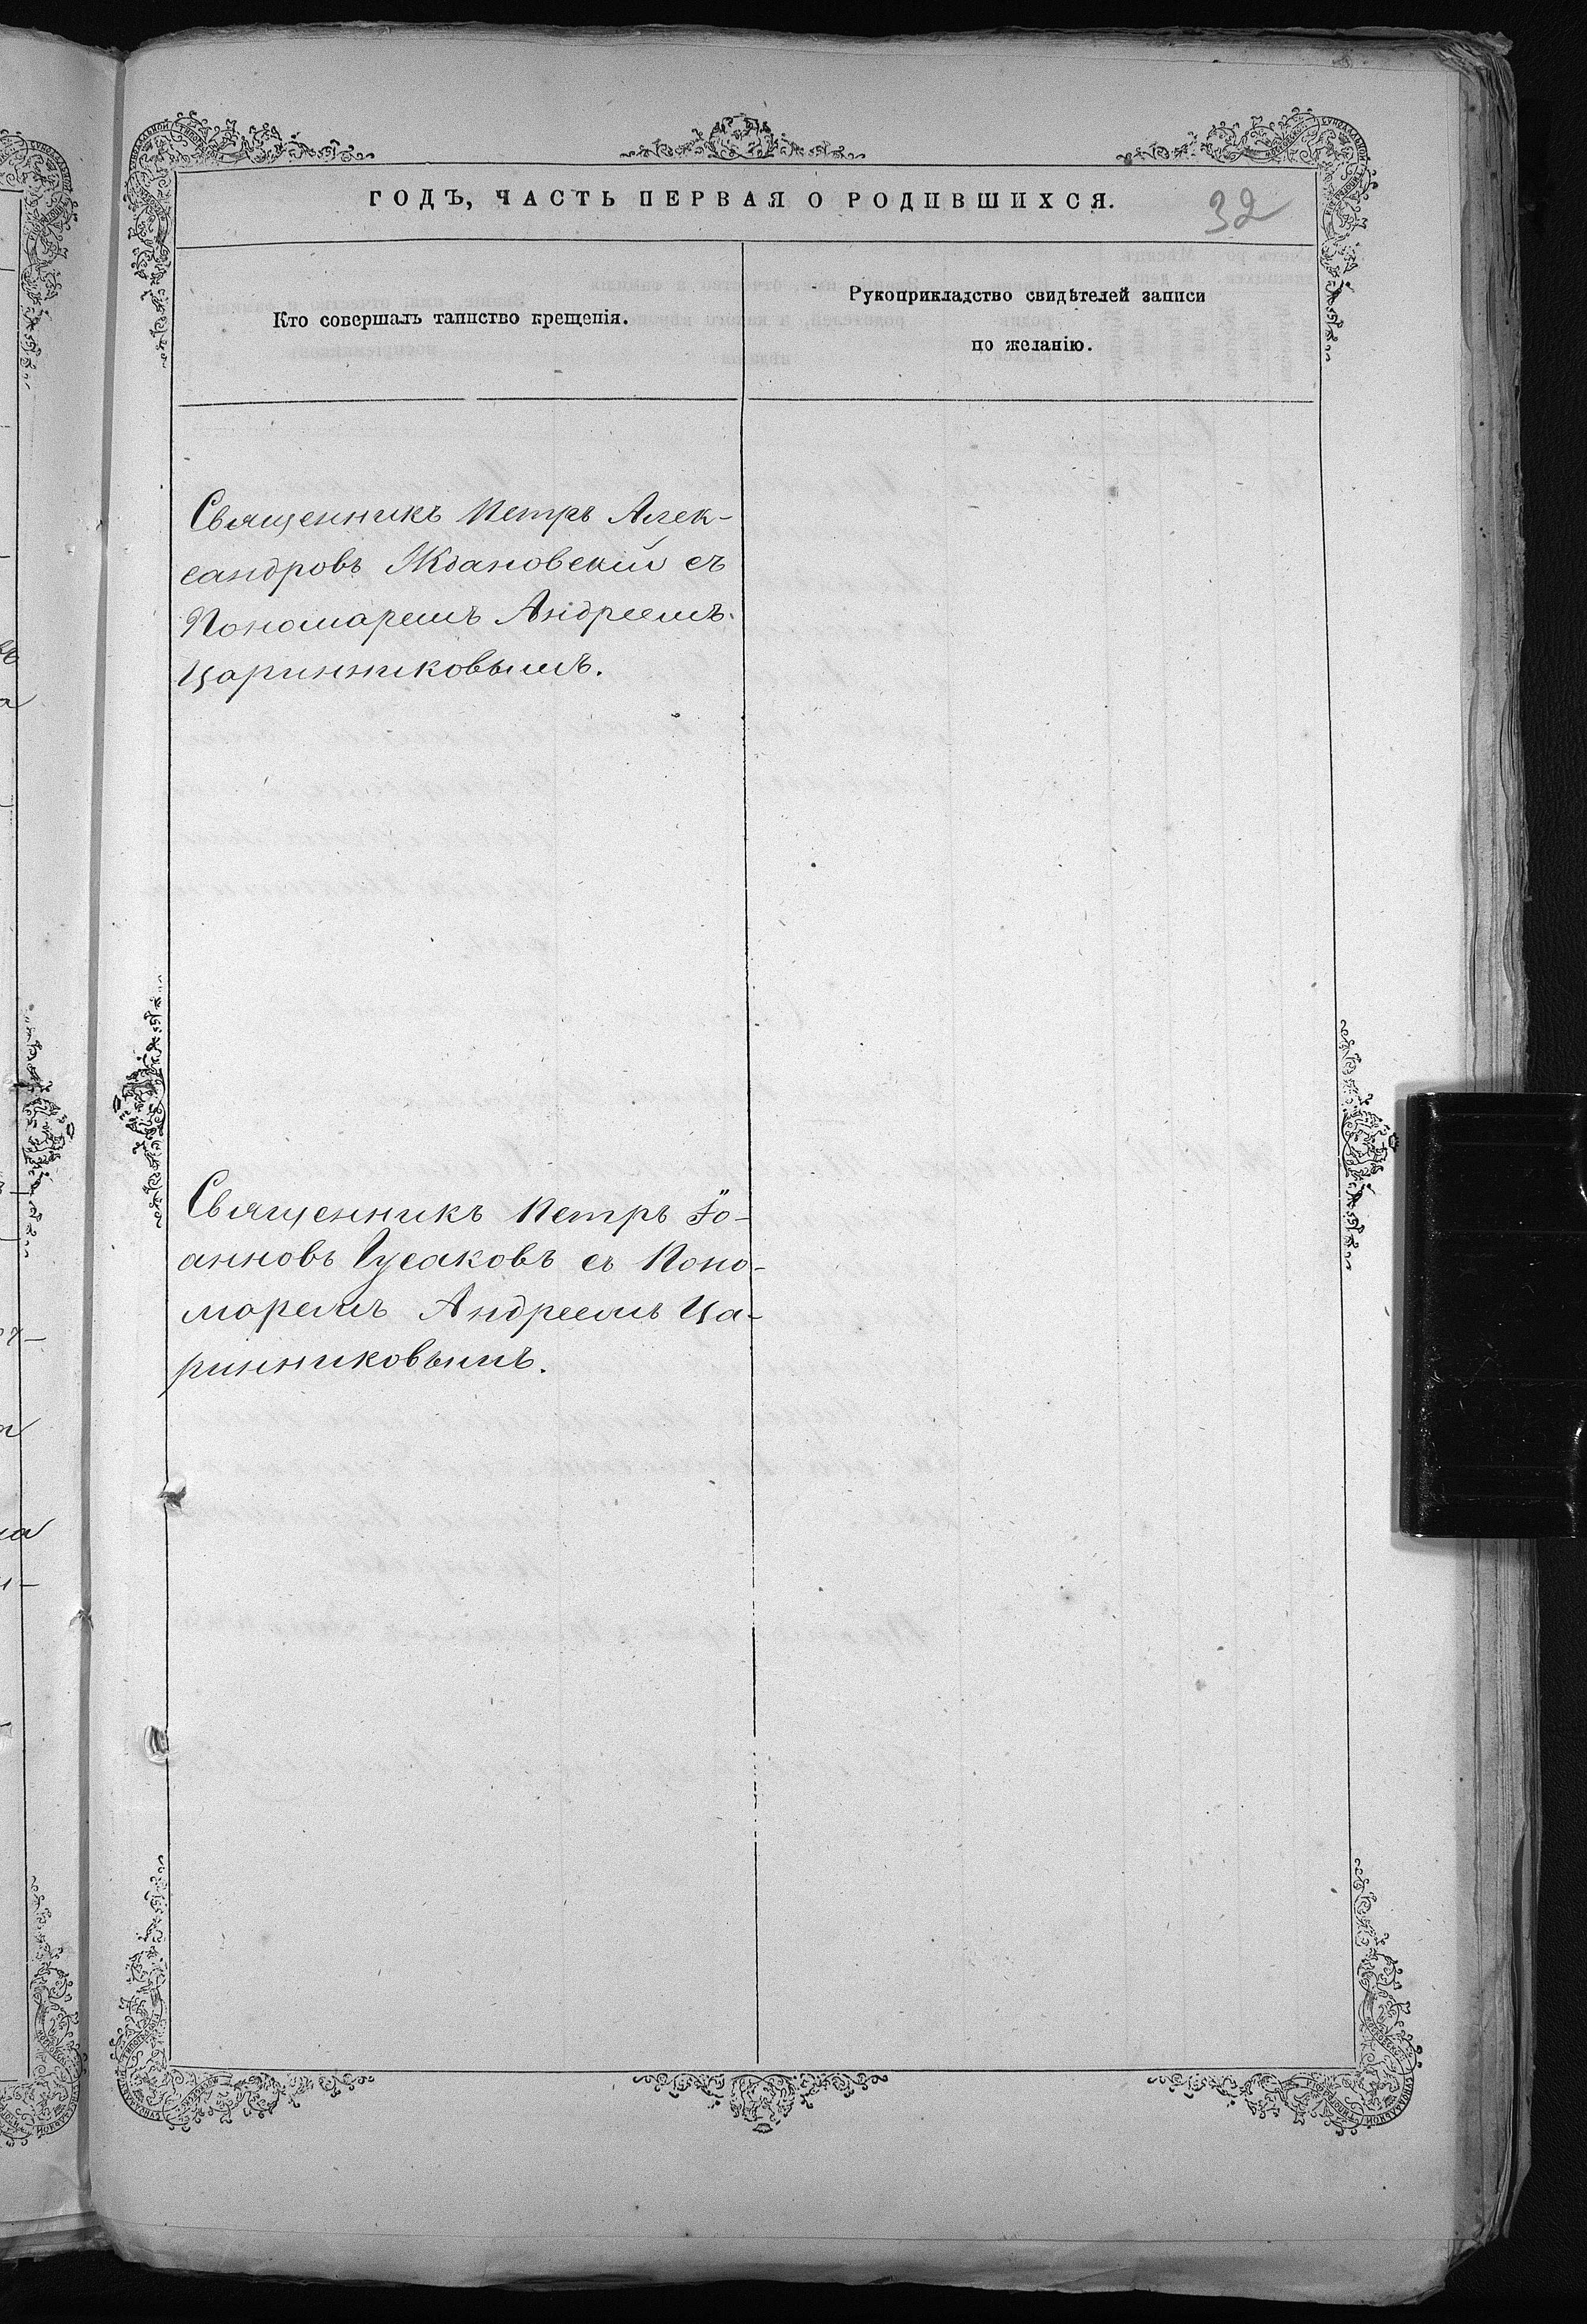 ГОДЪ, ЧАСТЬ ПЕРВАЯ О РОДИВШИХСЯ.
32
Кто совершалъ таинство крещенія.
Рукоприкладство свидѣтелей записи
по желанію.
Священникъ Петръ Алек-
сандровъ Ждановскій съ
Пономаремъ Андреемъ
Царинниковымъ.
Священникъ Петръ Іо-
анновъ Гусаковъ съ Поно-
моремъ Андреемъ Ца-
ринниковымъ.